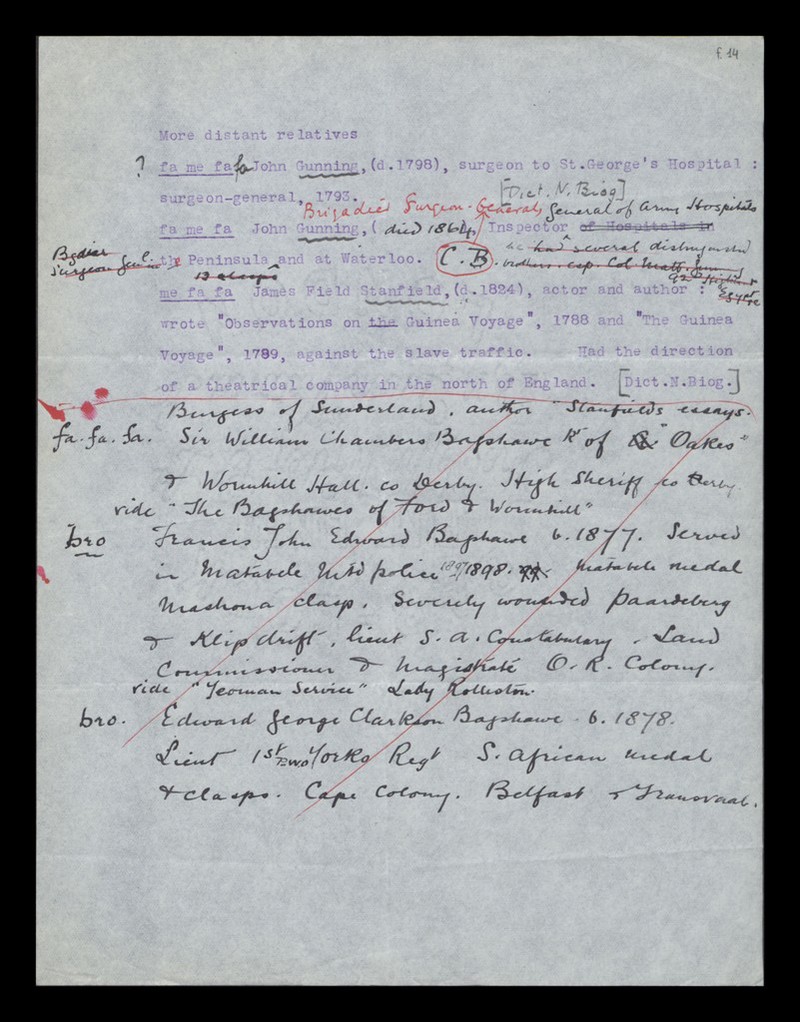 f. 14
More distant relatives
? fa me fa fa John Gunning, (d.1798), surgeon to St.George's Hospital :
surgeon-general, 1793. [Dict. N. Biog]
Brigadier Surgeon-General, General of Army Hospitals
fa me fa John Gunning, ( died 1864, Inspector of Hospitals in
Bgdier Surgeon Genl. in the Peninsula and at Waterloo. C.B. he had several distinguished
13 clasps brothers. esp. Col. Matt. Gunning
me fa fa James Field Stanfield, (d.1824), actor and author :
wrote "Observations on the Guinea Voyage", 1788 and "The Guinea
Voyage", 1789, against the slave traffic. Had the direction
of a theatrical company in the north of England. [Dict.N.Biog.]
Burgess of Sunderland, author "Stanfields essays.
fa. fa. fa. Sir William Chambers Bagshawe Kt of "Oakes"
& Wormhill Hall. co Derby. High Sheriff co Derby
vide "The Bagshawes of Ford & Wormhill"
bro Francis John Edward Bagshawe b. 1877. Served
in Matabele Mtd police 1897 1898. Matabele medal
Mashona clasp. Severely wounded Paardeberg
& Klipdrift, lieut S. A. Constabulary. Land
Commissioner & Magistrate O. R. Colony.
vide "Yeoman Service" Lady Rolleston.
bro. Edward George Clarkson Bagshawe. b. 1878.
Lieut 1st E Yorks Regt S. African medal
& clasps. Cape Colony. Belfast & Transvaal.